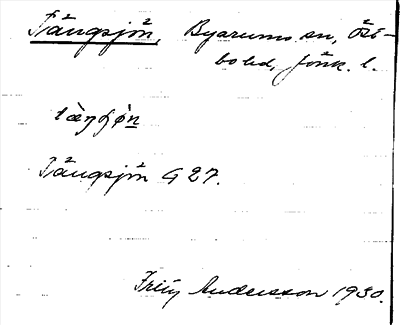 Tångsjön, Byarums sn, Öst-
bo hd, Jönk. l.
tàŋʃø̀n
Tångsjön G 27.
Fritz Andersson 1930.